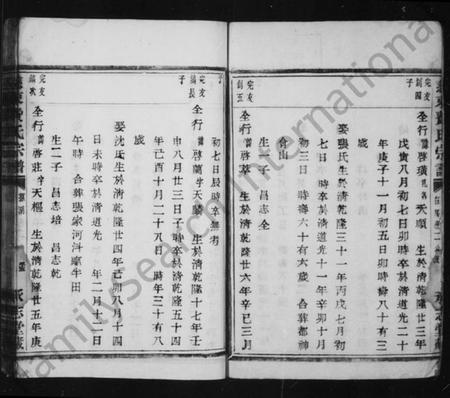 完友
嗣四
子
全行 諱啓璜 字天順 生於清乾隆廿三年
戊寅八月初七日卯時卒於清道光二十
年庚子十一月初五日卯時壽八十有三
歲
娶張氏生於清乾隆三十一年丙戌七月初
七日 時卒於清道光十一年辛卯十月
初三日 時壽六十有六歲 合葬都神
會山
生一子 昌志全
完友
嗣五
全行 諱啓莘 生於清乾隆廿六年辛巳三月
初七日辰時卒無考
完友
嗣長
子
全行 諱啓蘭 字天 生於清乾隆十七年壬
申八月廿三日子時卒於清乾隆五十四
年己酉十月二十八日 時年三十有八
歲
娶沈氏生於清乾隆廿四年己卯八月十四
日未時卒於清道光 年二月十二日
午時 合葬張家河
生二子 昌志培 昌志乾
完友
嗣次
全行 諱啓莊 字天樞 生於清乾隆廿五年庚
氏宗譜
永志堂藏
FamilySearch International